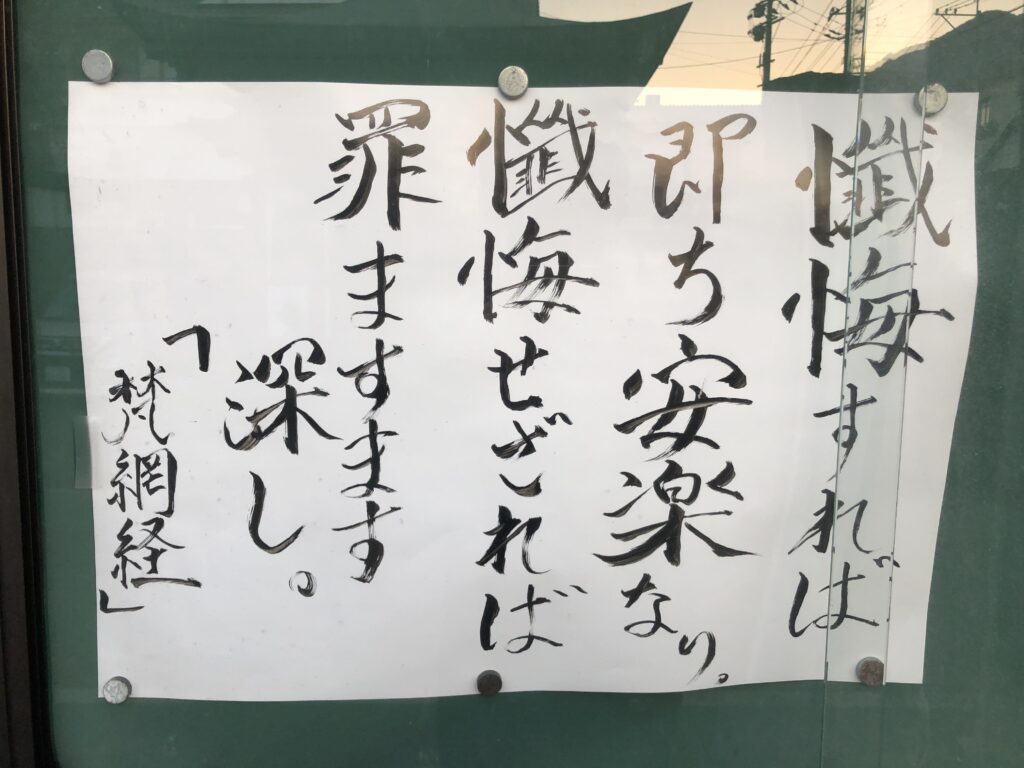 懺悔すれば
即ち安楽なり。
懺悔せざれば
罪ますます
深し。
「梵網経」